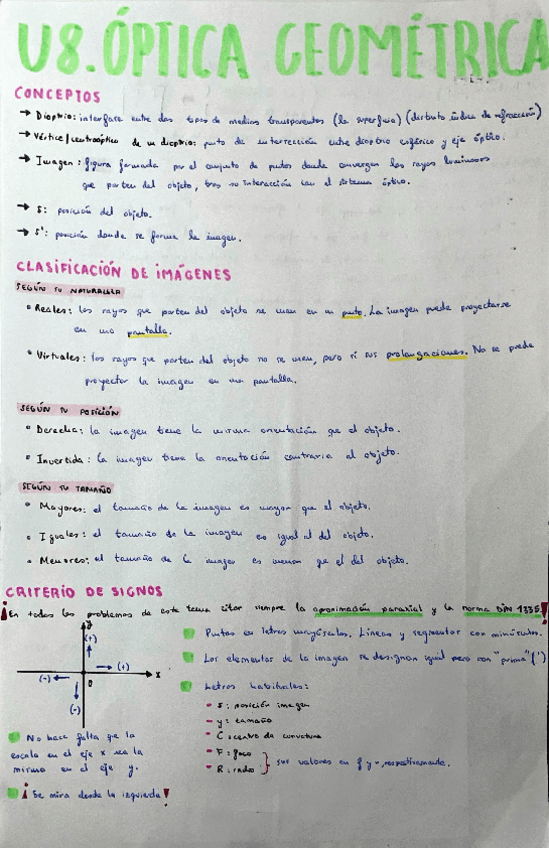 U8. ÓPTICA GEOMÉTRICA
CONCEPTOS
→ Dioptrio: interfase entre dos tipos de medios transparentes (la superficie) (distinto índice de refracción)
→ Vértice/centro óptico de un dioptrio: punto de intersección entre dioptrio esférico y eje óptico.
→ Imagen: figura formada por el conjunto de puntos donde convergen los rayos luminosos
que parten del objeto, tras su interacción con el sistema óptico.
→ s: posición del objeto.
→ s': posición donde se forma la imagen.
CLASIFICACIÓN DE IMÁGENES
SEGÚN SU NATURALEZA
• Reales: los rayos que parten del objeto se unen en un punto. La imagen puede proyectarse
en una pantalla.
• Virtuales: los rayos que parten del objeto no se unen, pero sí sus prolongaciones. No se puede
proyectar la imagen en una pantalla.
SEGÚN SU POSICIÓN
• Derecha: la imagen tiene la misma orientación que el objeto.
• Invertida: la imagen tiene la orientación contraria al objeto.
SEGÚN SU TAMAÑO
• Mayores: el tamaño de la imagen es mayor que el objeto.
• Iguales: el tamaño de la imagen es igual al del objeto.
• Menores: el tamaño de la imagen es menor que el del objeto.
CRITERIO DE SIGNOS
¡En todos los problemas de este tema citar siempre la aproximación paraxial y la norma DIN 1335!
(+)
(-) → (+) x
0
(-)
Puntos en letras mayúsculas. Líneas y segmentos con minúsculas.
Los elementos de la imagen se designan igual pero con "prima" (')
Letras habituales:
• s: posición imagen
• y: tamaño
• C: centro de curvatura
• F: foco
• R: radio } sus valores en f y r, respectivamente.
No hace falta que la
escala en el eje x sea la
misma en el eje y.
¡Se mira desde la izquierda!